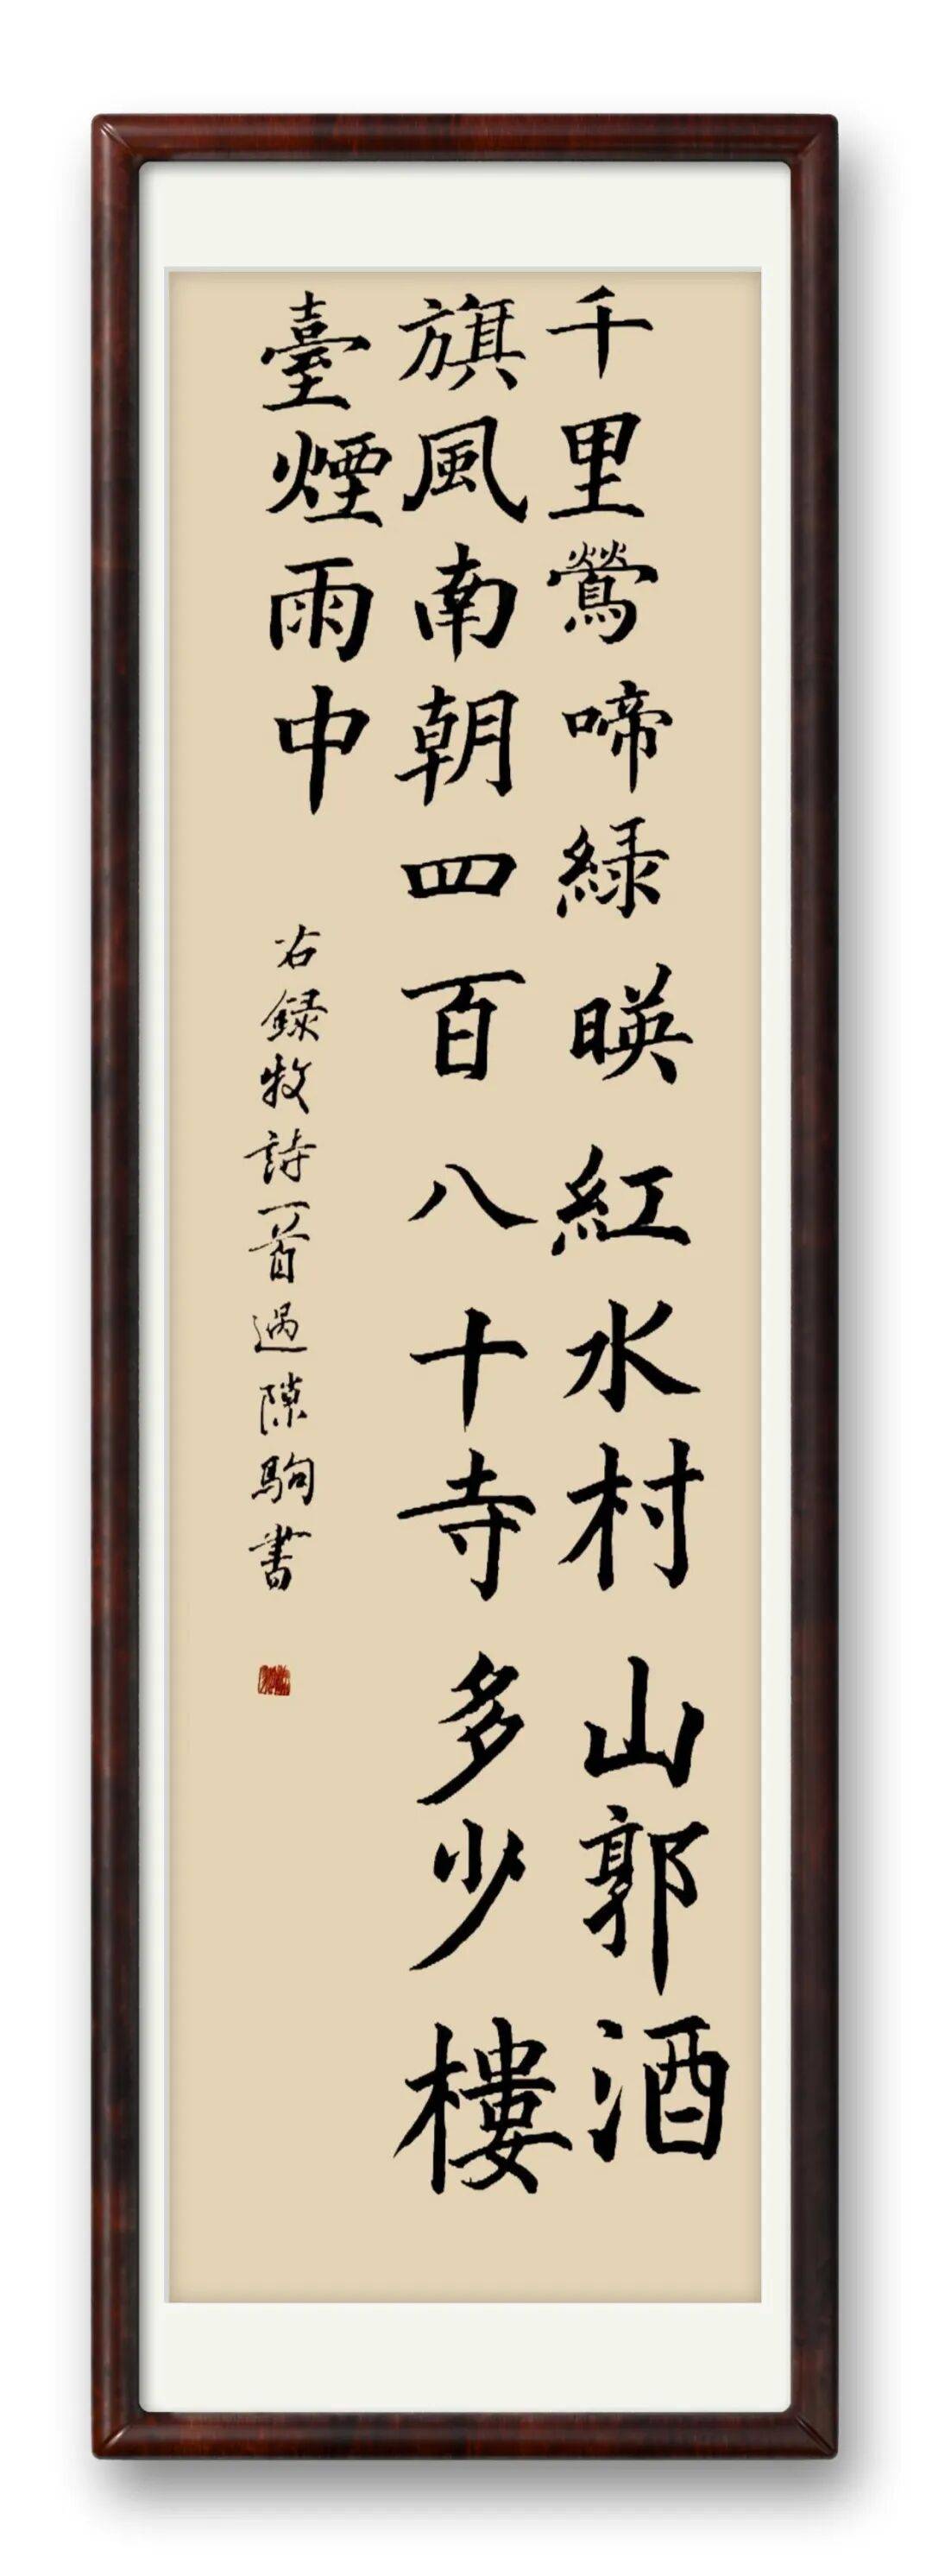 千里鶯啼緑暎紅水村山郭酒
旗風南朝四百八十寺多少樓
臺煙雨中
右録牧詩一首過陳駒書